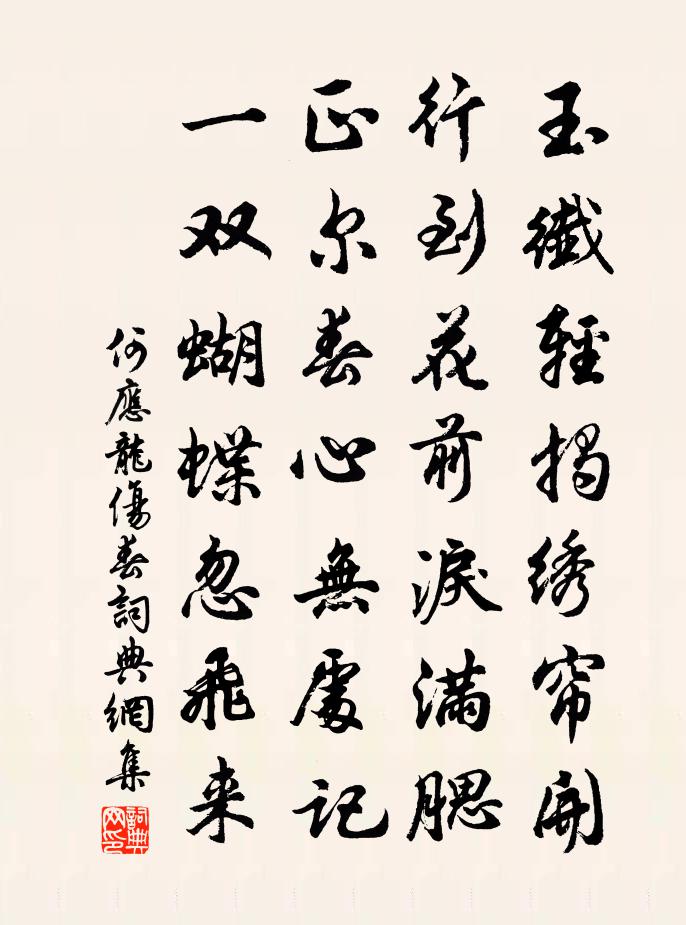 玉纖輕揭绣帘開
行到花前淚满腮
正尔春心無處记
一双蝴蝶忽飛来
何應龍傷春詞典網集
詞典網印